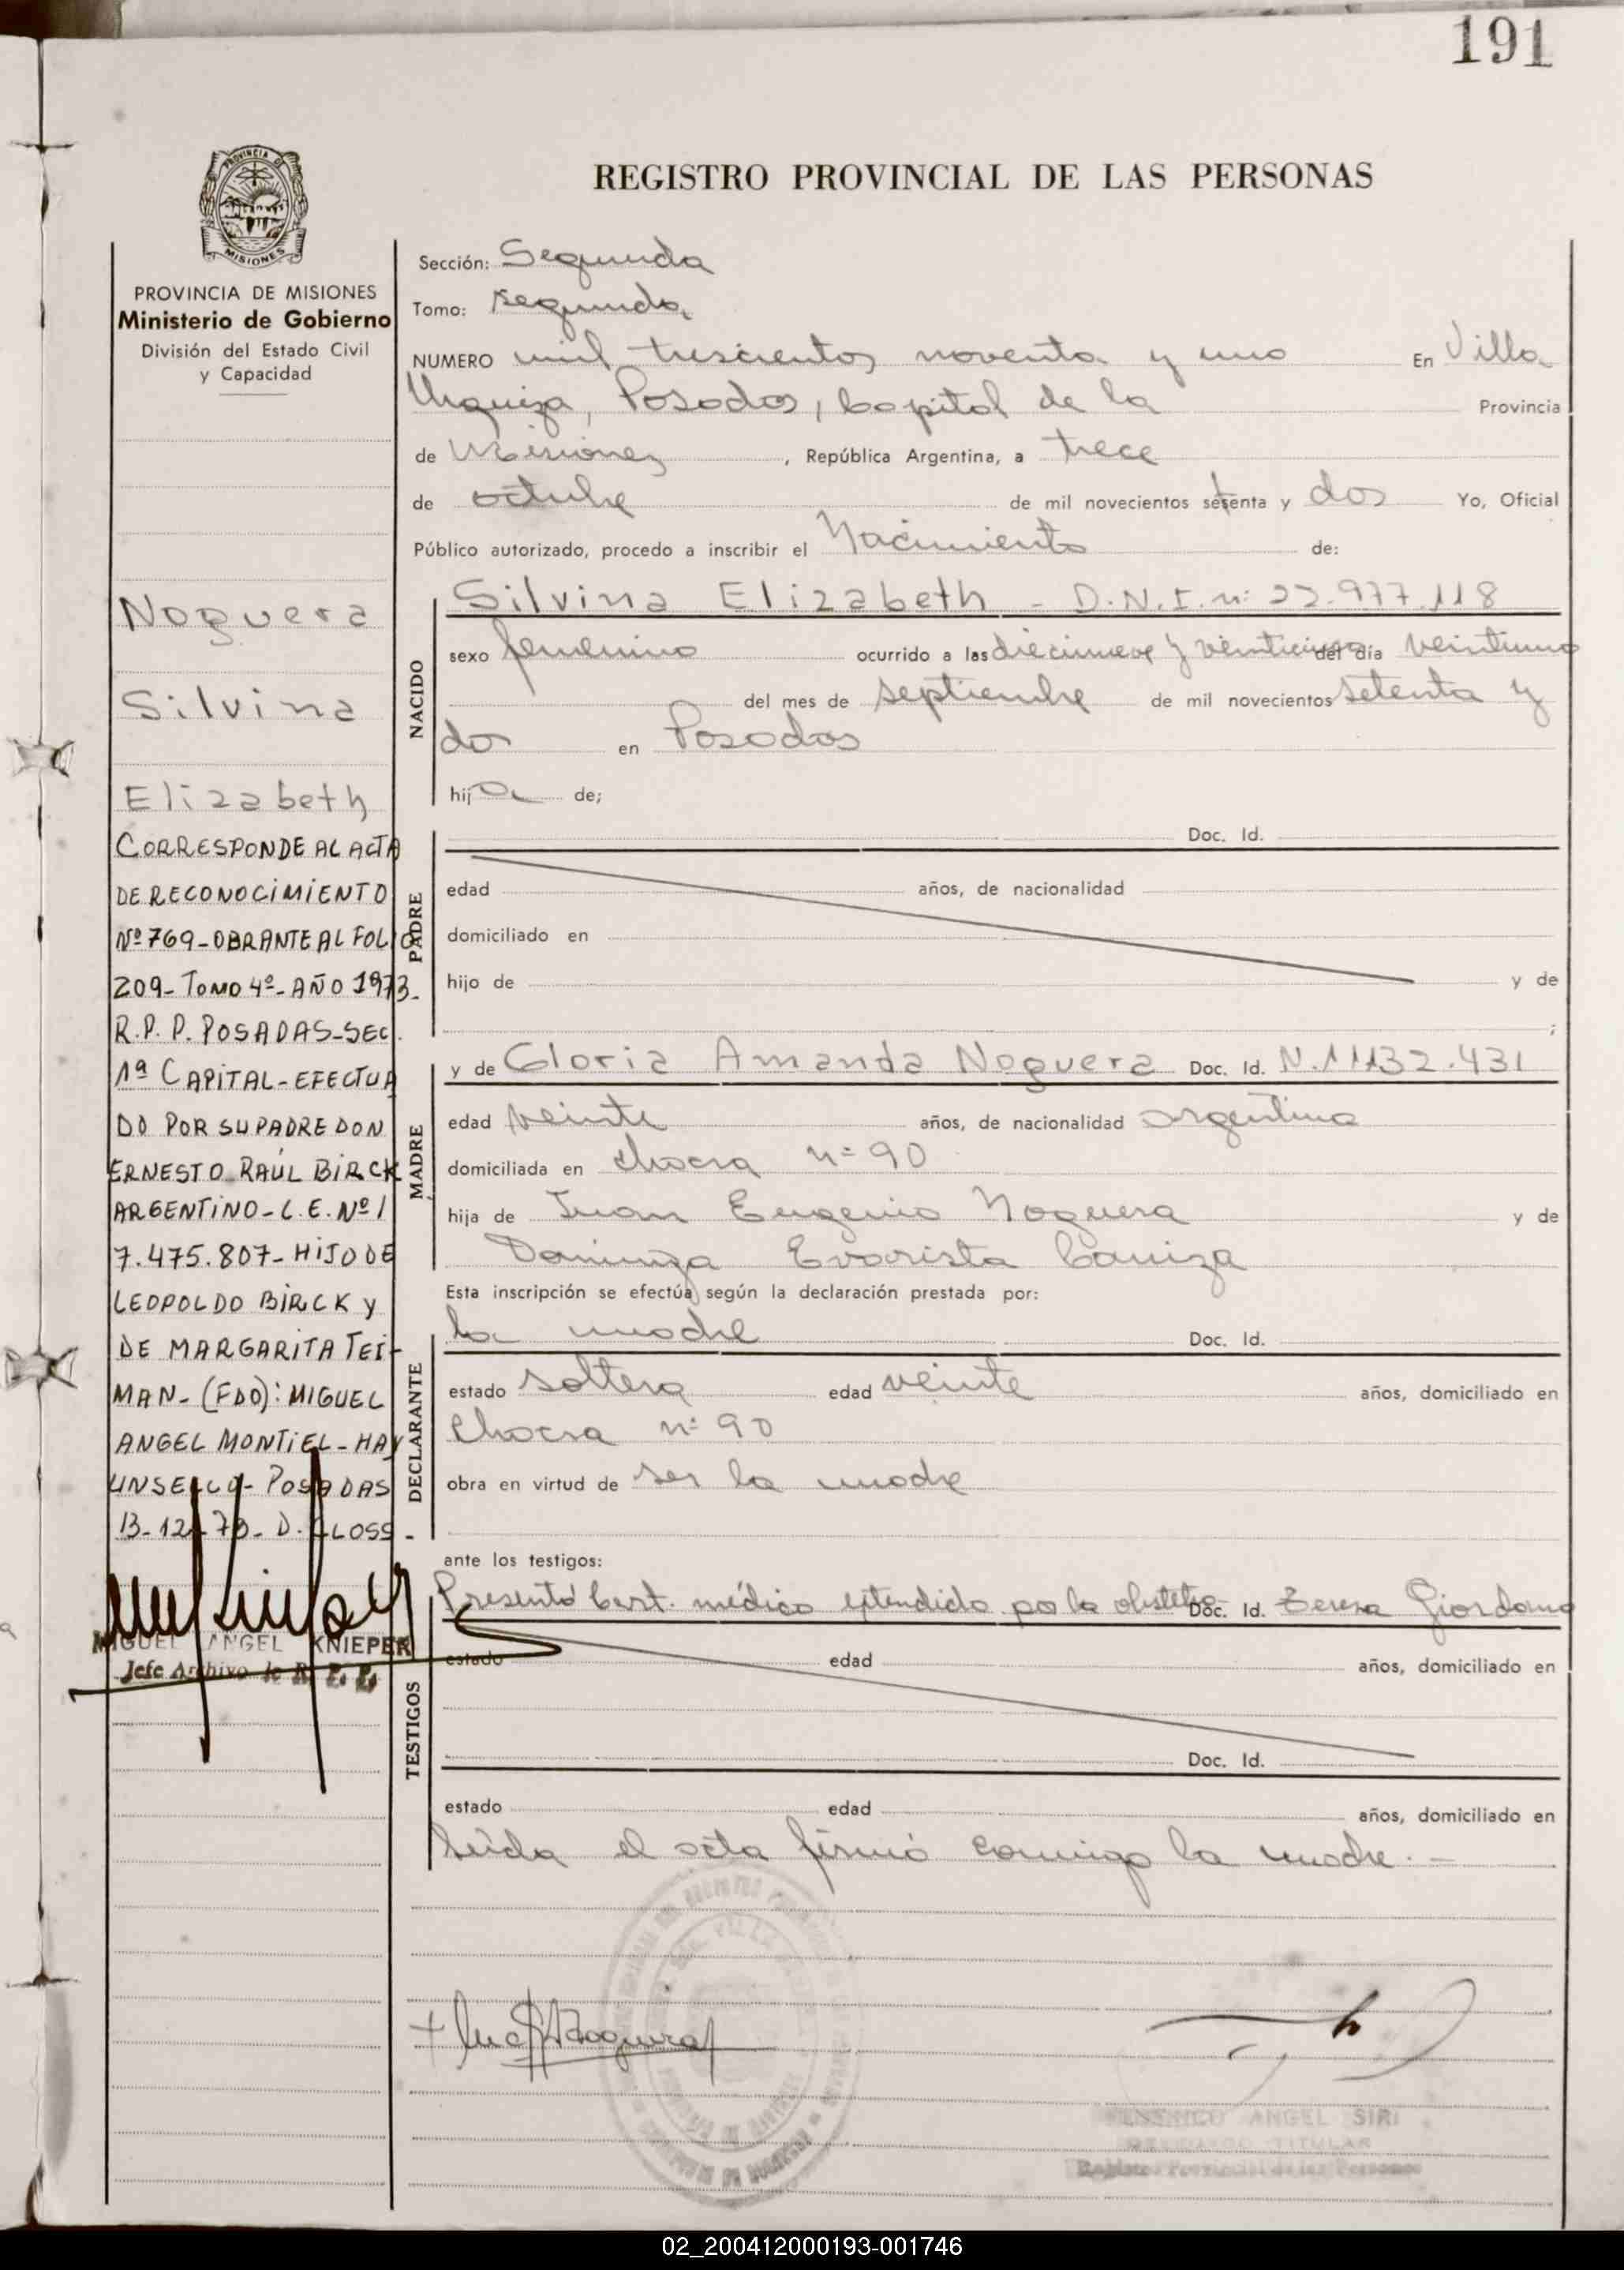 191
PROVINCIA DE
MISIONES
REGISTRO PROVINCIAL DE LAS PERSONAS
PROVINCIA DE MISIONES
Ministerio de Gobierno
División del Estado Civil
y Capacidad
Noguera
Silvina
Elizabeth
CORRESPONDE AL ACTA
DE RECONOCIMIENTO
Nº 769-OBRANTE AL FOLIO
209-TOMO 4º-AÑO 1973-
R.P.P. POSADAS-SEC.
1ª CAPITAL-EFECTUA
DO POR SU PADRE DON
ERNESTO RAÚL BIRCK
ARGENTINO-L.E. Nº
7.475.807-HIJO DE
LEOPOLDO BIRCK y
DE MARGARITA TEI-
MAN-(FDO): MIGUEL
ANGEL MONTIEL-HAY
UN SELLO-POSADAS
13-12-78-D. CLOSS-
MIGUEL ANGEL KNIEPER
Jefe Archivo de R. P. P.
Sección: Segunda
Tomo: segundo
NUMERO mil trescientos noventa y uno En Villa
Urquiza, Posadas, Capital de la Provincia
de Misiones, República Argentina, a trece
de octubre de mil novecientos setenta y dos Yo, Oficial
Público autorizado, procedo a inscribir el Nacimiento de:
NACIDO
Silvina Elizabeth - D.N.I. nº 22.977.118
sexo femenino ocurrido a las diecinueve y veinticinco del día veintiuno
del mes de septiembre de mil novecientos setenta y
dos en Posadas
hija de;
PADRE
Doc. Id.
edad años, de nacionalidad
domiciliado en
hijo de y de
;
MADRE
y de Gloria Amanda Noguera Doc. Id. N.11132.431
edad veinte años, de nacionalidad argentina
domiciliada en chacra nº 90
hija de Juan Eugenio Noguera y de
Dominga Evarista Caniza
Esta inscripción se efectúa según la declaración prestada por:
DECLARANTE
la madre Doc. Id.
estado soltera edad veinte años, domiciliado en
chacra nº 90
obra en virtud de ser la madre
ante los testigos:
TESTIGOS
Presentó Cert. médico extendido por la obstetra Doc. Id. Teresa Giordano
estado edad años, domiciliado en
Doc. Id.
estado edad años, domiciliado en
Leída el acta firmó conmigo la madre.-
ANGEL SIRI
TITULAR
Registro Provincial de las Personas
02_200412000193-001746